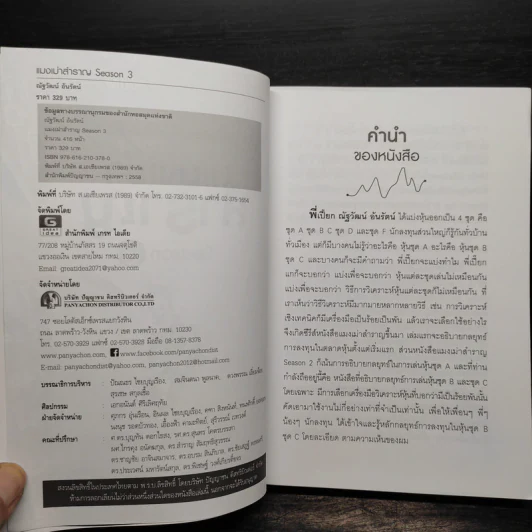 แมงเม่าสำราญ Season 3
ณัฐวัฒน์ อ้นรัตน์
ราคา 329 บาท
ข้อมูลทางบรรณานุกรมของสำนักหอสมุดแห่งชาติ
ณัฐวัฒน์ อ้นรัตน์
แมงเม่าสำราญ Season 3
จำนวน 416 หน้า
ราคา 329 บาท
ISBN 978-616-210-378-0
พิมพ์ที่ บริษัท ส.เอเชียเพรส (1989) จำกัด
สำนักพิมพ์ปัญญาชน — กรุงเทพฯ : 2558
พิมพ์ที่ บริษัท ส.เอเชียเพรส (1989) จำกัด โทร. 02-732-3101-6 แฟกซ์
จัดพิมพ์โดย
GREAT IDEA สำนักพิมพ์ เกรท ไอเดีย
77/208 หมู่บ้านภัสสร 19 ถนนเจตุโชติ
แขวงออเงิน เขตสายไหม กทม. 10220
Email greatidea2071@yahoo.com
จัดจำหน่ายโดย
บริษัท ปัญญาชน ดิสทริบิวเตอร์ จำกัด
PANYACHON DISTRIBUTOR CO.,LTD
747 ซอยโชคชัย
ถนน ลาดพร้าว-วังหิน แขวง / เขต ลาดพร้าว กทม. 10230
โทร. 02-570-3820 แฟกซ์ 02-570-3928 มือถือ 08-1357-4378
www.panyachon.com www.facebook.com/panyachondist
Email: panyachon@yahoo.com, panyachon2012@hotmail.com
บรรณาธิการบริหาร :
ศิลปกรรม :
ฝ่ายจัดจำหน่าย :
คณะที่ปรึกษา :
คำนำ
ของหนังสือ
พี่เปี๊ยก ณัฐวัฒน์ อ้นรัตน์ ได้แบ่งหุ้นออกเป็น 4 ชุด คือ
ชุด A ชุด B C ชุด D และชุด F นักลงทุนส่วนใหญ่ก็รู้กันทั่วบ้าน
ทั่วเมือง แต่ก็มีบางคนไม่รู้ว่าอะไรคือ หุ้นชุด A อะไรคือ หุ้นชุด B
ชุด C และบางคนก็จะมีคำถามว่า พี่เปี๊ยกจะแบ่งทำไม พี่เปี๊ยก
แกก็จะบอกว่า แบ่งเพื่อจะบอกว่า หุ้นแต่ละชุดเล่นไม่เหมือนกัน
แบ่งเพื่อจะบอกว่า วิธีการวิเคราะห์หุ้นแต่ละชุดก็ไม่เหมือนกัน ที่
เราเห็นว่าวิธีวิเคราะห์มีมากมายหลากหลายวิธี เช่น การวิเคราะห์
เชิงเทคนิคก็มีเครื่องมือเป็นร้อยเป็นพัน แล้วเราจะเลือกใช้อย่างไร
จึงเกิดซีรีส์หนังสือแมงเม่าสำราญขึ้นมา เล่มแรกจะอธิบายกลยุทธ์
การลงทุนในตลาดหุ้นตั้งแต่เริ่มแรก ส่วนหนังสือแมงเม่าสำราญ
Season 2 ก็เน้นการอธิบายกลยุทธ์ในการเล่นหุ้นชุด A และที่ท่าน
กำลังถืออยู่นี้คือ หนังสือที่อธิบายกลยุทธ์การเล่นหุ้นชุด B และชุด C
โดยเฉพาะ มีการเลือกเครื่องมือวิเคราะห์หุ้นที่บอกว่ามีเป็นร้อยพันนั้น
คัดเอามาใช้งานไม่กี่อย่างเท่าที่จำเป็นเท่านั้น เพื่อให้เพื่อนๆ พี่ๆ
น้องๆ นักลงทุน ได้เข้าใจและรู้หลักกลยุทธ์การลงทุนในหุ้นชุด B
ชุด C โดยละเอียด ตามความเห็นของผม